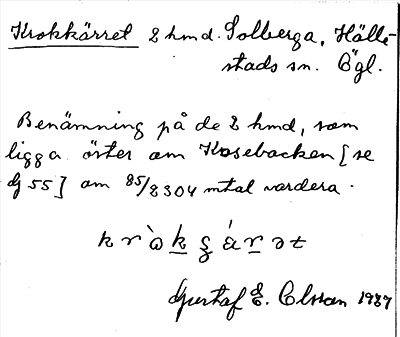 Krokkärret 2 hmd. Solberga, Hälle-
stads sn. Ögl.
Benämning på de 2 hmd, som
ligga öster om Kosebacken [se
55] om 85/2304 mtal vardera.
kr`ωkʂ´ärət
Gustaf E. Olsson 1937